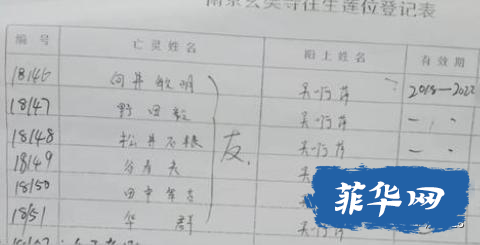 南京玄奘寺往生莲位登记表
编号 亡灵姓名 阳上姓名 有效期
18146 向井敏明 吴啊萍 2018—2022
18147 野田毅 吴啊萍 — 〃
18148 松井石根 友. 吴啊萍 — 〃
18149 谷寿夫
18150 田中军吉
18151 华群 吴啊萍
菲华网